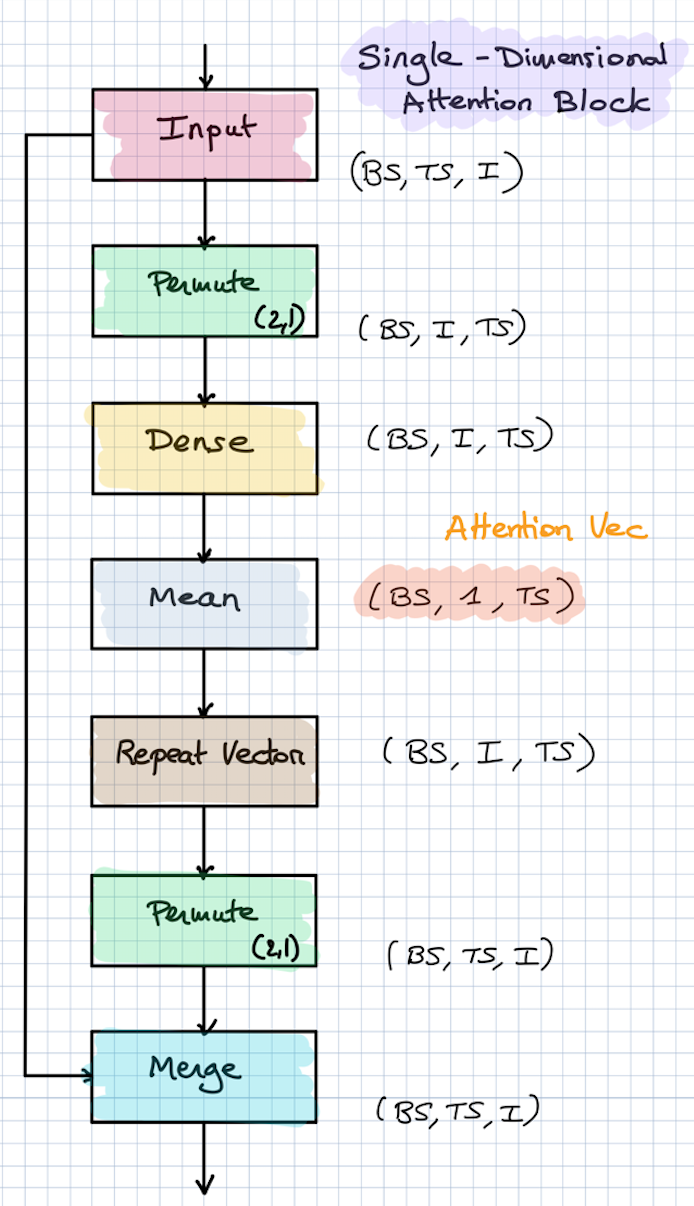 Single-Dimensional
Attention Block
Input
(BS, TS, I)
Permute
(2,1)
(BS, I, TS)
Dense
(BS, I, TS)
Attention Vec
Mean
(BS, 1, TS)
Repeat Vector
(BS, I, TS)
Permute
(2,1)
(BS, TS, I)
Merge
(BS, TS, I)